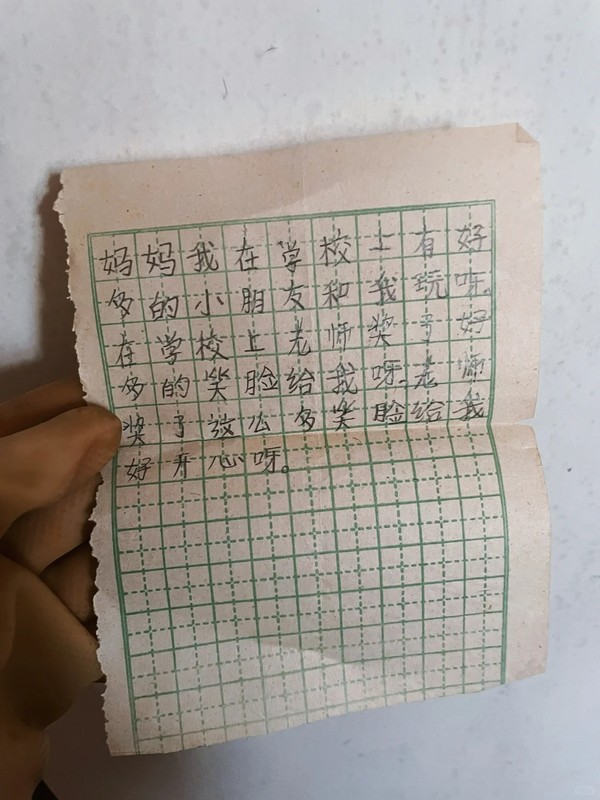 妈妈我在学校上有好
多的小朋友和我玩呀.
在学校上老师奖了好
多的笑脸给我呀.老师
奖了这么多笑脸给我
好开心呀。